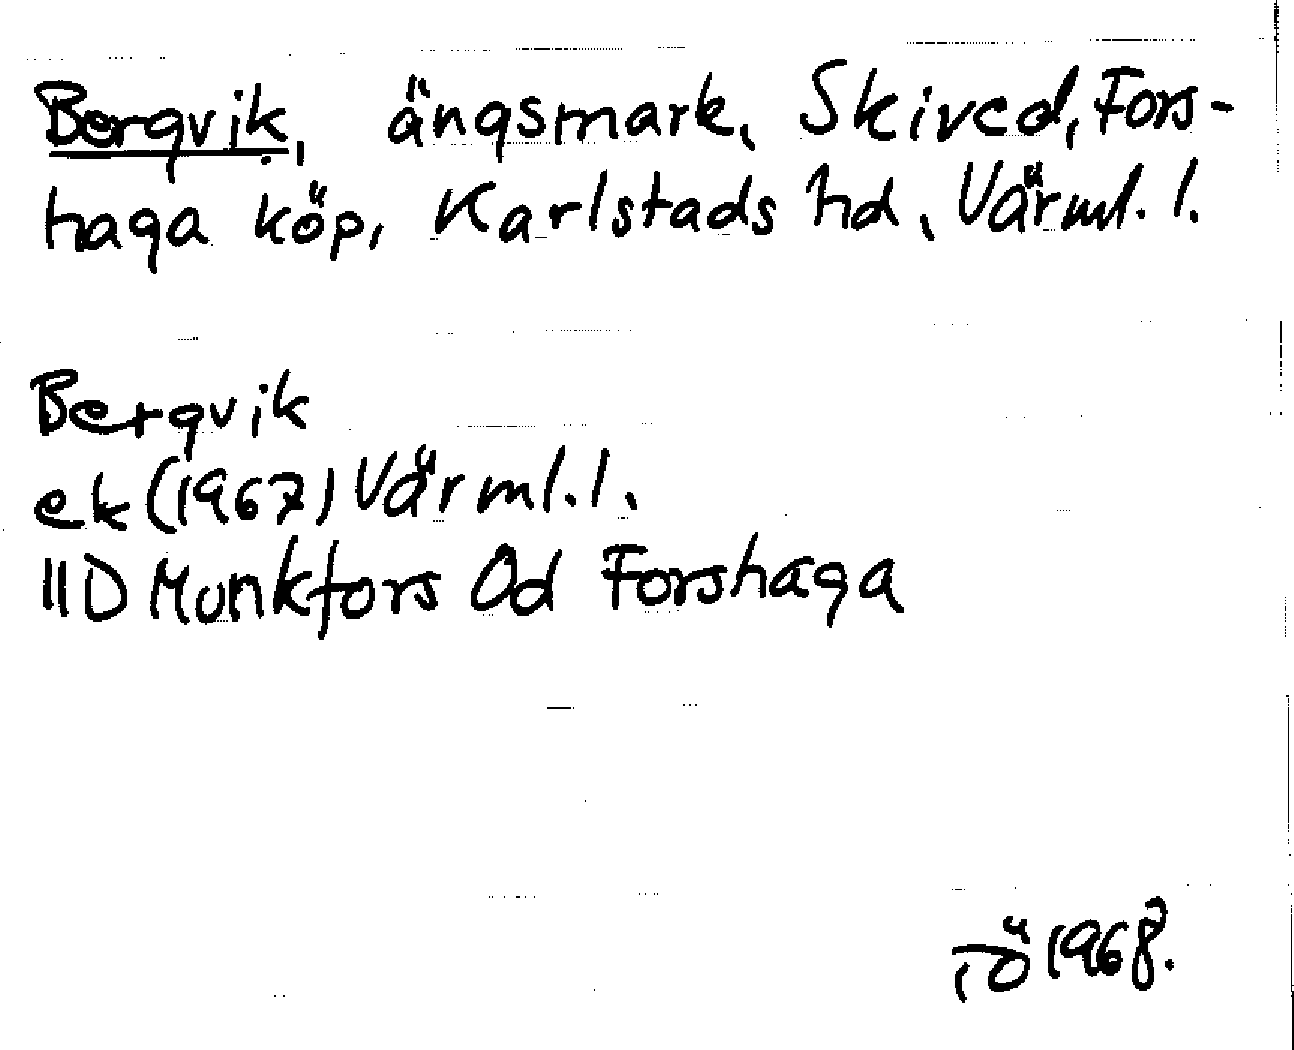 Bergvik, ängsmark, Skived, Fors-
haga köp, Karlstads hd, Värml. l.
Bergvik
ek (1967) Värml. l.
11D Munkfors Od Forshaga
TÖ 1968.